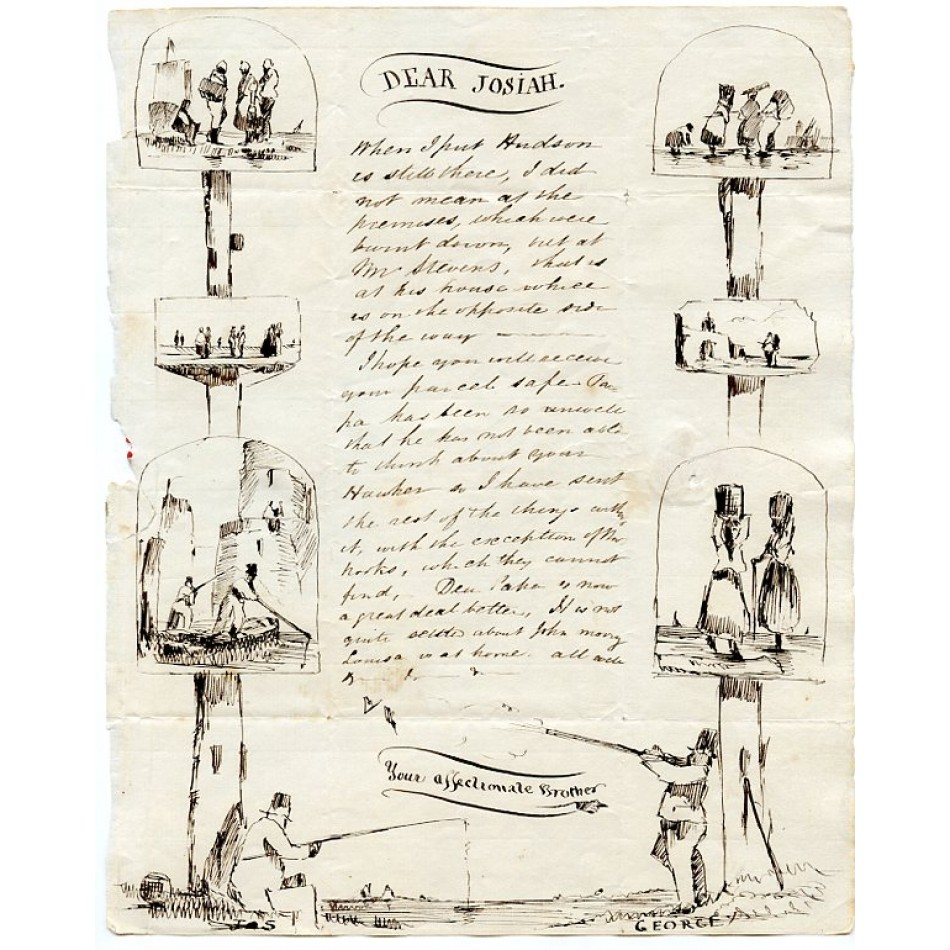 DEAR JOSIAH.
When I put Hudson
is still there, I did
not mean at the
premises, which were
burnt down, but at
Mr Stevens, that is
at his house which
is on the opposite side
of the way
I hope you will receive
your parcel safe. Pa-
pa has been so unwell
that he has not been able
to think about your
so I have sent
the rest of the things with
it, with the exception of the
hooks, which they cannot
find, Dear Papa is now
a great deal better, It is not
quite settled about John
Louisa is at home. all well
Your affectionate Brother
JOS
GEORGE